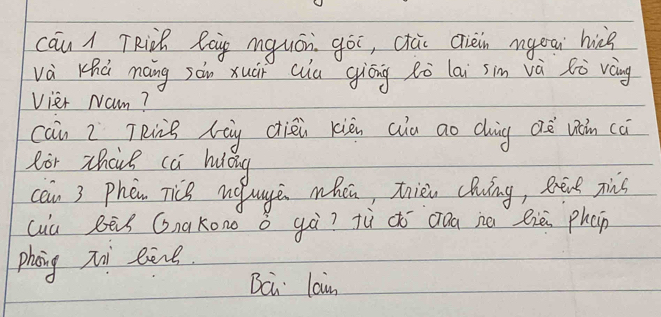 Câu 1 Trình bày nguồn gốc, đặc điểm ngoại hình
và khả năng sản xuất của giống bò lai sin và bò vàng
Việt Nam?
Câu 2 Trình bày điều kiện của ao dùng để ươm cá
bột thành cá hương
Câu 3 Phân Tích nguyên nhân, triệu chứng, bệnh tích
của bệnh Gnakoro ở gà? từ đó đưa ra biện pháp
phòng trị bệnh.
Bài làm